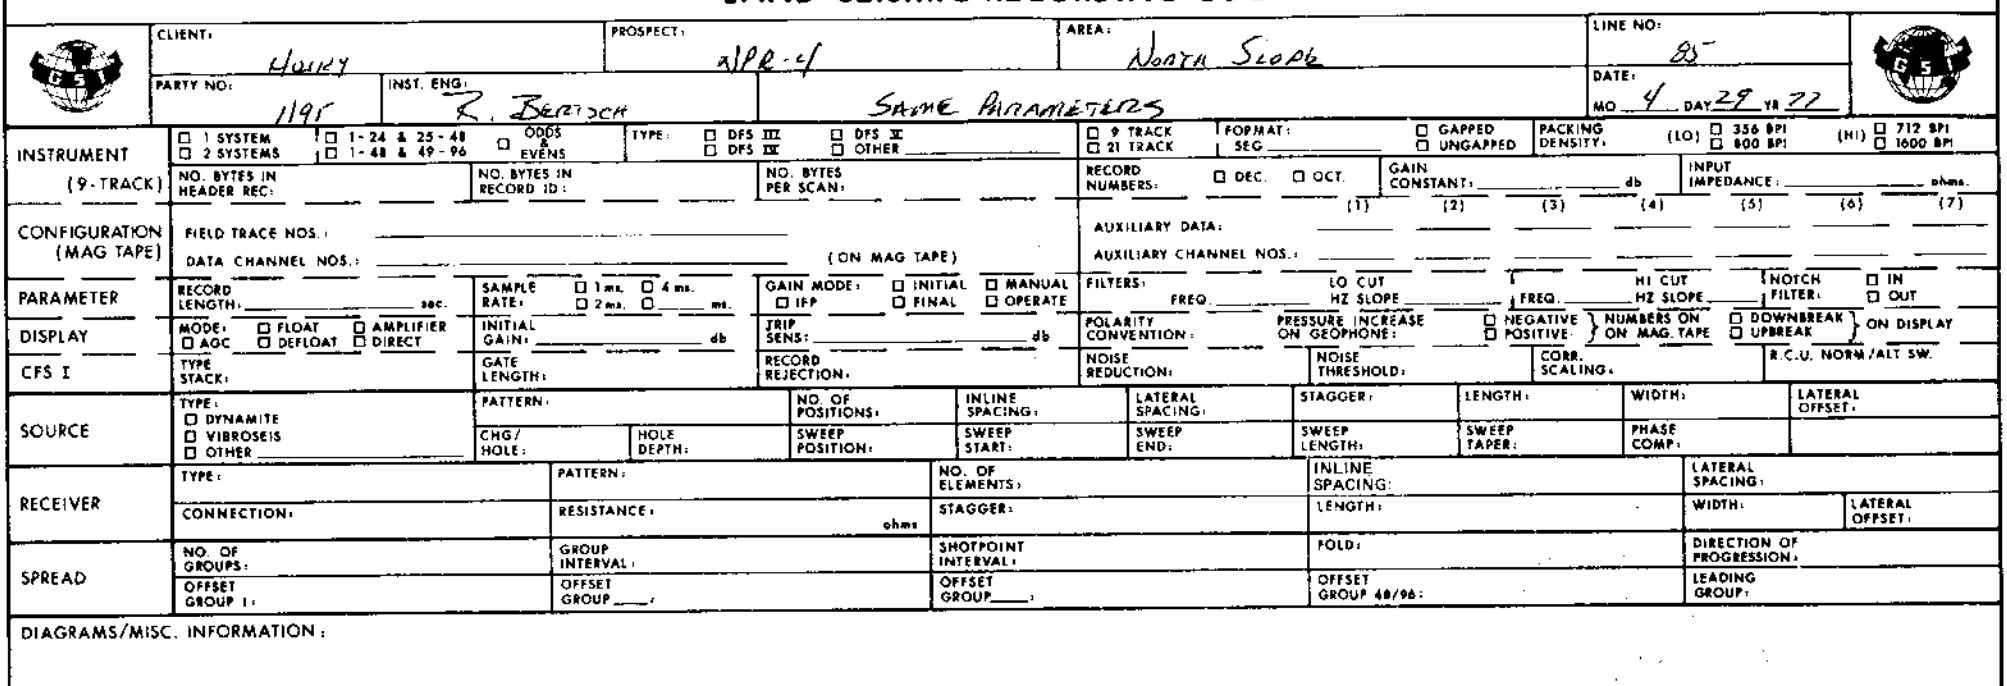 CLIENT: PROSPECT: NPR-4 AREA: NORTH SLOPE LINE NO: 85
GSI
PARTY NO: 1195 INST. ENG: R. BERTSCH SAME PARAMETERS DATE: MO 4 DAY 29 YR 77
GSI
INSTRUMENT (9-TRACK)
□ 1 SYSTEM □ 1-24 & 25-48 □ ODDS & EVENS TYPE: □ DFS III □ DFS V □ 9 TRACK FORMAT: □ GAPPED PACKING DENSITY: (LO) □ 356 BPI (HI) □ 712 BPI
□ 2 SYSTEMS □ 1-48 & 49-96 □ DFS IV □ OTHER □ 21 TRACK SEG □ UNGAPPED □ 800 BPI □ 1600 BPI
NO. BYTES IN HEADER REC: NO. BYTES IN RECORD ID: NO. BYTES PER SCAN: RECORD NUMBERS: □ DEC. □ OCT. GAIN CONSTANT: db INPUT IMPEDANCE: ohms.
CONFIGURATION (MAG TAPE)
(1) (2) (3) (4) (5) (6) (7)
FIELD TRACE NOS.: AUXILIARY DATA:
DATA CHANNEL NOS.: (ON MAG TAPE) AUXILIARY CHANNEL NOS.:
PARAMETER
RECORD LENGTH: sec. SAMPLE RATE: □ 1 ms. □ 4 ms. □ 2 ms. □ ms. GAIN MODE: □ INITIAL □ MANUAL □ IFP □ FINAL □ OPERATE FILTERS: LO CUT FREQ. HZ SLOPE HI CUT FREQ. HZ SLOPE NOTCH FILTER: □ IN □ OUT
DISPLAY
MODE: □ FLOAT □ AMPLIFIER □ AGC □ DEFLOAT □ DIRECT INITIAL GAIN: db TRIP SENS: db POLARITY CONVENTION: PRESSURE INCREASE ON GEOPHONE: □ NEGATIVE □ POSITIVE } NUMBERS ON ON MAG. TAPE □ DOWNBREAK □ UPBREAK } ON DISPLAY
CFS I
TYPE STACK: GATE LENGTH: RECORD REJECTION: NOISE REDUCTION: NOISE THRESHOLD: CORR. SCALING: R.C.U. NORM/ALT SW.
SOURCE
TYPE: □ DYNAMITE □ VIBROSEIS □ OTHER PATTERN: NO. OF POSITIONS: INLINE SPACING: LATERAL SPACING: STAGGER: LENGTH: WIDTH: LATERAL OFFSET:
CHG/HOLE: HOLE DEPTH: SWEEP POSITION: SWEEP START: SWEEP END: SWEEP LENGTH: SWEEP TAPER: PHASE COMP:
RECEIVER
TYPE: PATTERN: NO. OF ELEMENTS: INLINE SPACING: LATERAL SPACING:
CONNECTION: RESISTANCE: ohms STAGGER: LENGTH: WIDTH: LATERAL OFFSET:
SPREAD
NO. OF GROUPS: GROUP INTERVAL: SHOTPOINT INTERVAL: FOLD: DIRECTION OF PROGRESSION:
OFFSET GROUP 1: OFFSET GROUP : OFFSET GROUP : OFFSET GROUP 48/96: LEADING GROUP:
DIAGRAMS/MISC. INFORMATION: